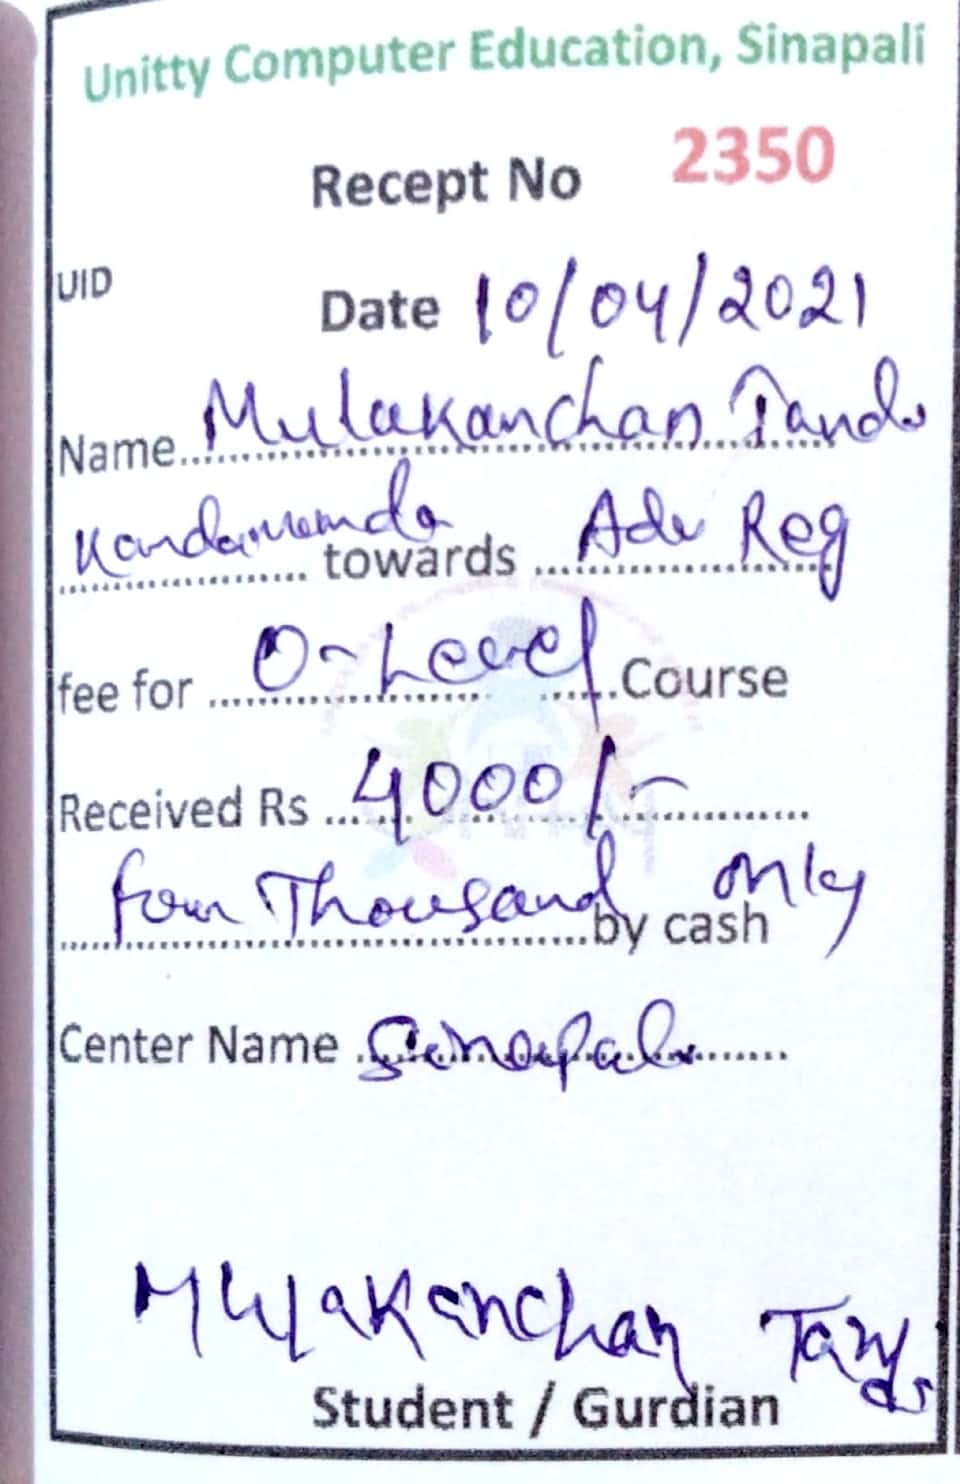 Unitty Computer Education, Sinapali
Recept No 2350
UID
Date 10/04/2021
Name Mulakanchan Tandi
Kandamunda towards Adv Reg
fee for O-Level Course
Received Rs 4000/-
four Thousand only by cash
Center Name Sinapali
Mulakanchan Tandi
Student / Gurdian